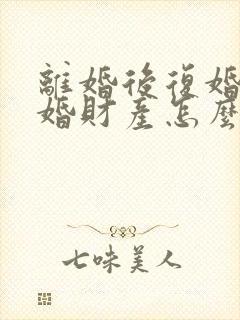 離婚後復婚
婚財產怎麼
七味美人